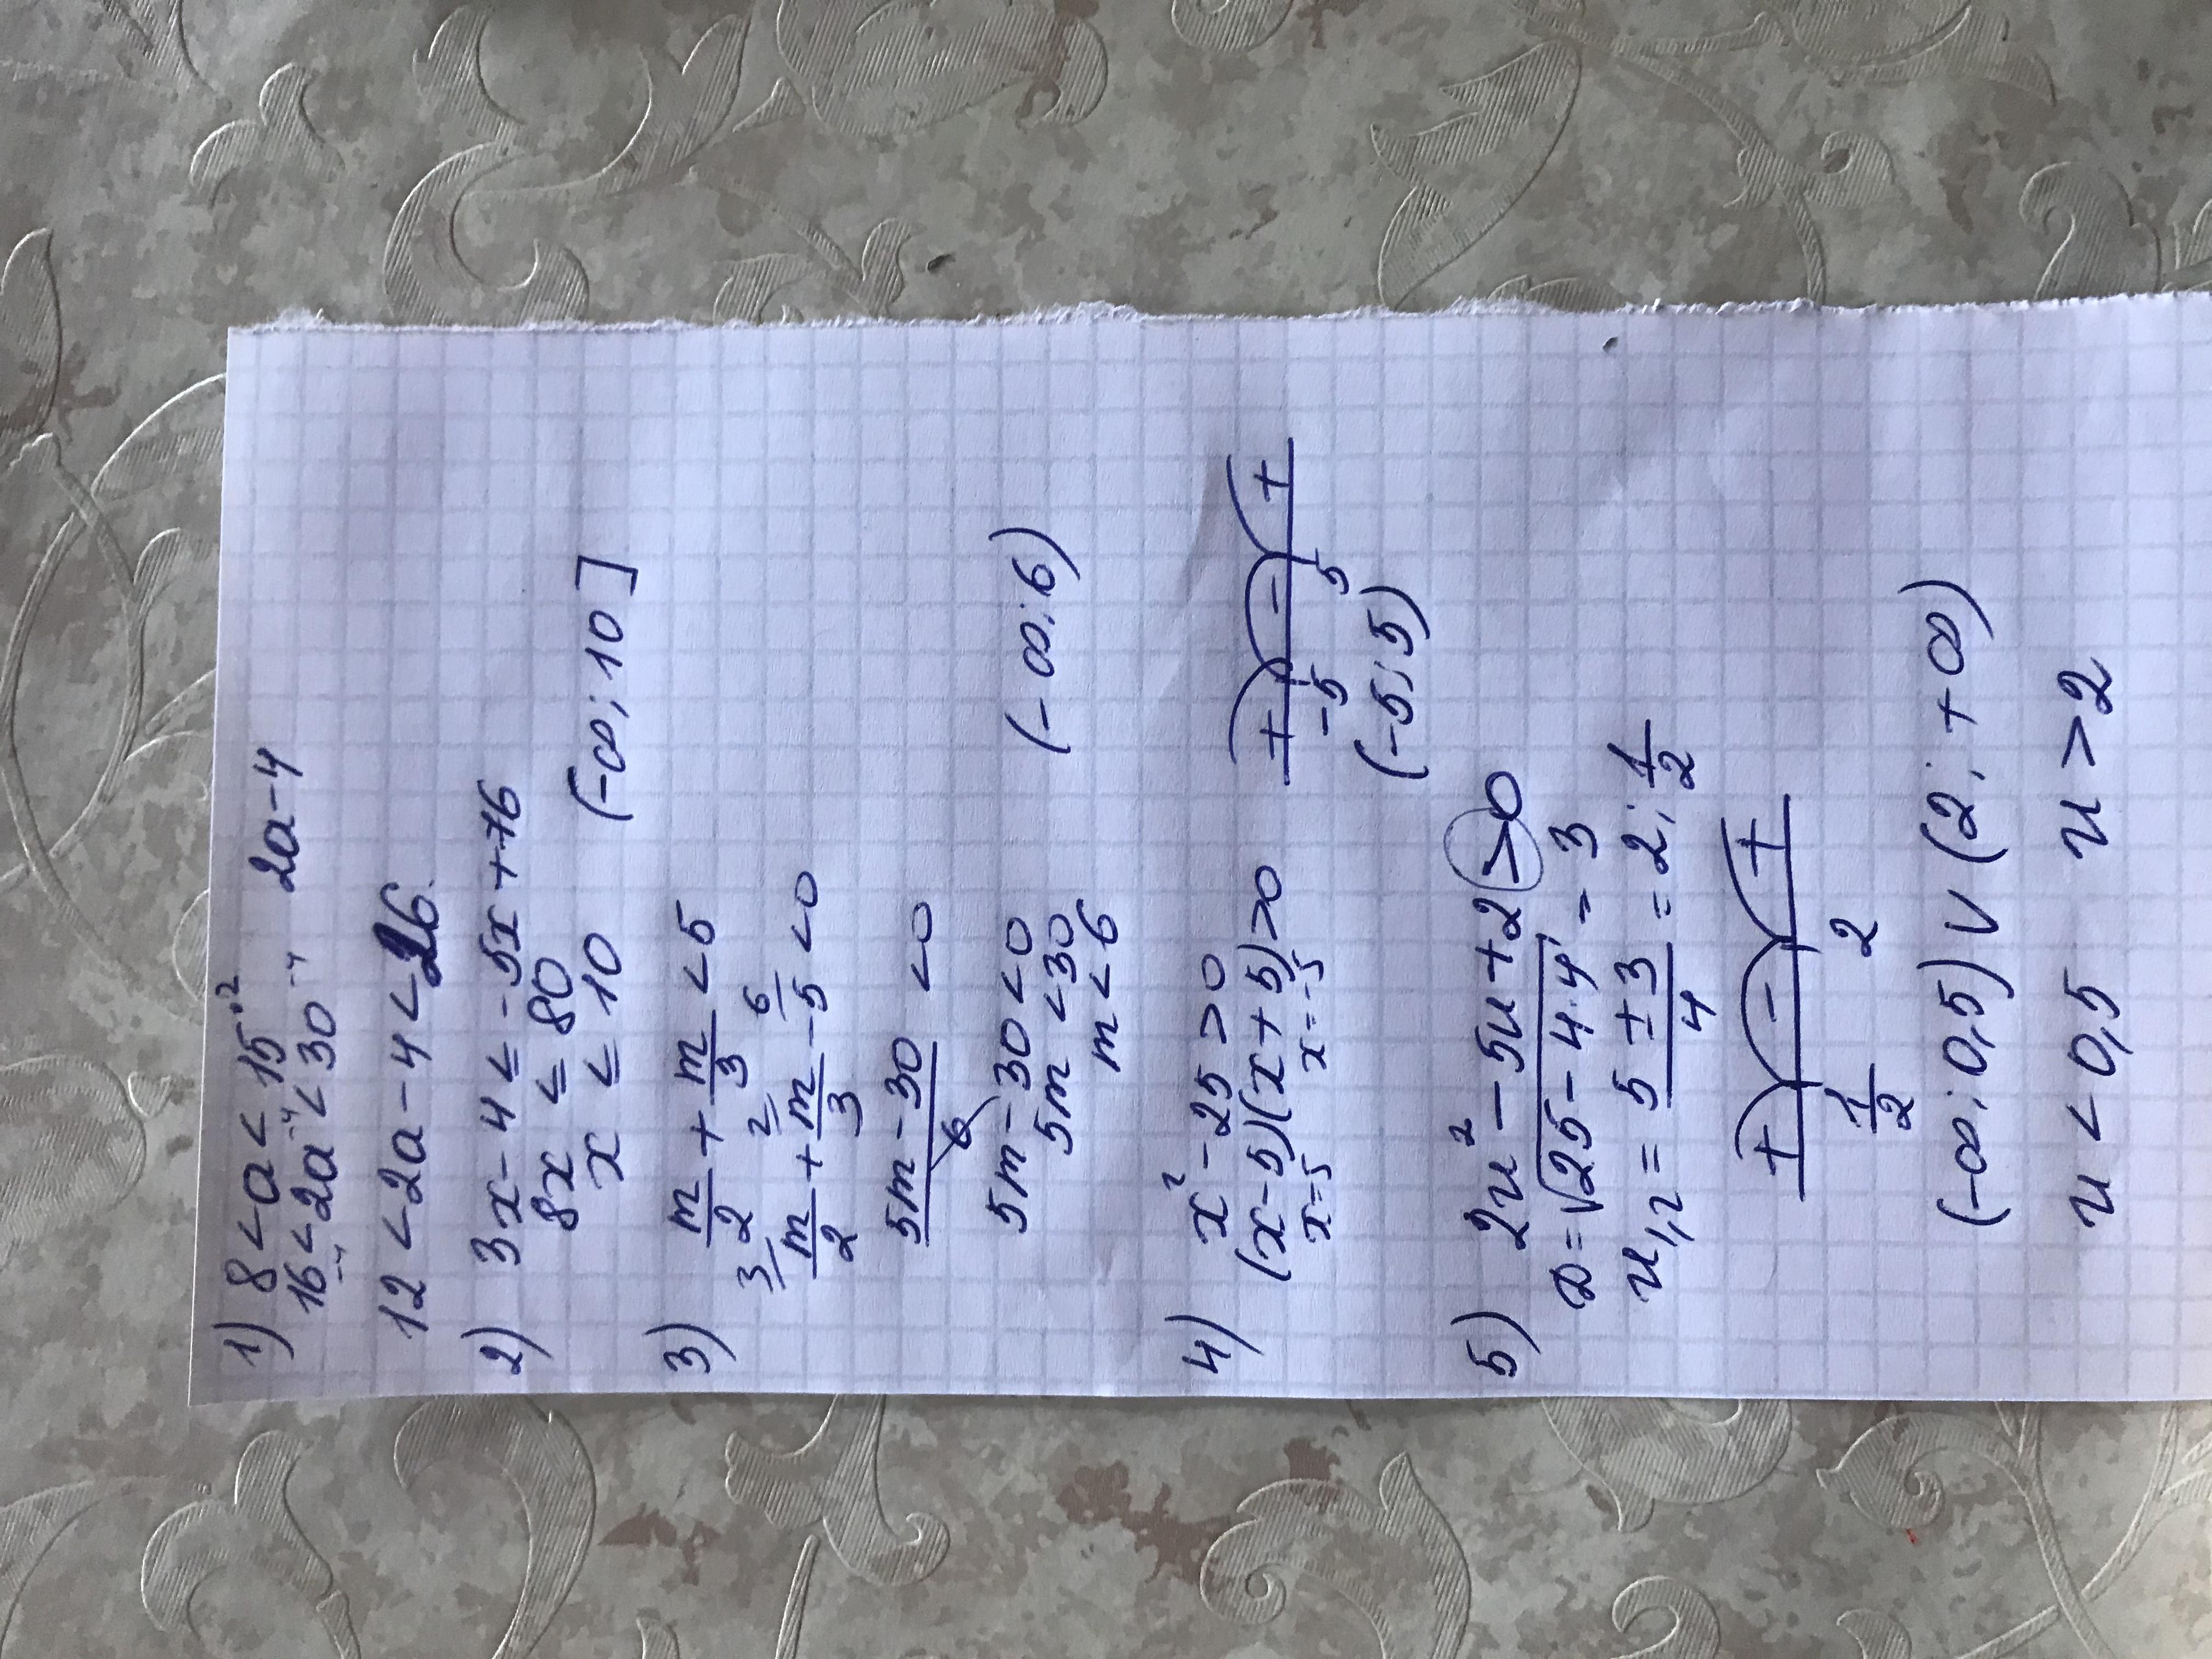 1) 8 < a < 15 ·2 2a-4
16 < 2a < 30
-4 -4 -4
12 < 2a - 4 < 26.
2) 3x - 4 ≤ -5x + 76
8x ≤ 80
x ≤ 10 (-∞; 10]
3) m/2 + m/3 < 5
3/ 2/ 6/
m/2 + m/3 - 5 < 0
5m - 30/6 < 0
5m - 30 < 0
5m < 30 (-∞; 6)
m < 6
4) x² - 25 > 0
(x-5)(x+5) > 0 + - +
x=5 x=-5 -5 5
(-5; 5)
5) 2u² - 5u + 2 > 0
D = √25 - 4·4 = 3
u1,2 = 5 ± 3/4 = 2; 1/2
+ - +
1/2 2
(-∞; 0,5) ∨ (2; +∞)
u < 0,5 u > 2